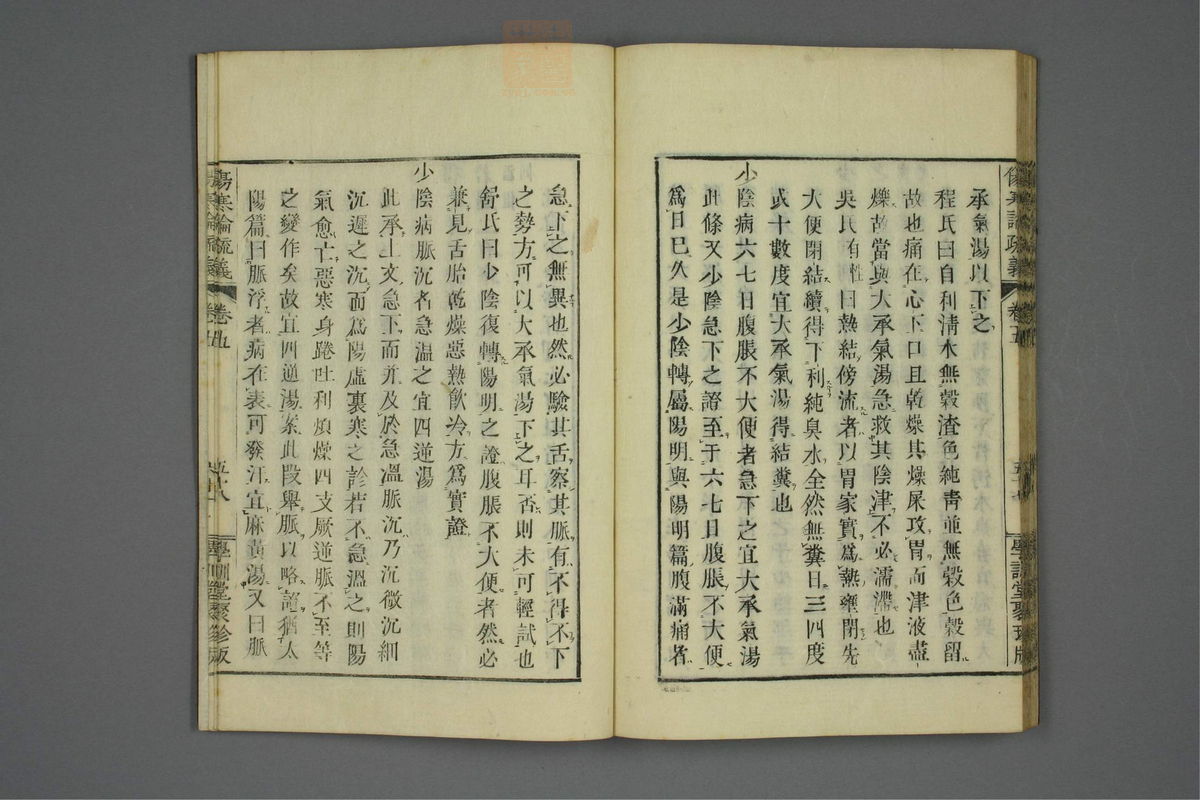 承氣湯以下之
程氏曰自利淸水無穀渣色純靑並無穀色穀留
故也痛在心下口且乾燥其燥屎攻胃而津液盡
燥故當與大承氣湯急救其陰津不必濡滯也
吳氏有性曰熱結傍流者以胃家實爲熱壅閉先
大便閉結續得下利純臭水全然無糞日三四度
或十數度宜大承氣湯得結糞也
少陰病六七日腹脹不大便者急下之宜大承氣湯
此條又少陰急下之證至于六七日腹脹不大便
爲日已久是少陰轉屬陽明與陽明篇腹滿痛者
急下之無異也然必驗其舌察其脈有不得不下
之勢方可以大承氣湯下之耳否則未可輕試也
舒氏曰少陰復轉陽明之證腹脹不大便者然必
兼見舌胎乾燥惡熱飮冷方爲實證
少陰病脈沉者急温之宜四逆湯
此承上文急下而并及於急溫脈沉乃沉微沉細
沉遲之沉而爲陽虛裏寒之診若不急溫之則陽
氣愈亡惡寒身踡吐利煩燥四支厥逆脈不至等
之變作矣故宜四逆湯矣此段舉脈以略證猶太
陽篇曰脈浮者病在表可發汗宜麻黃湯又曰脈
傷寒論疏義
卷五
學訓堂聚珍版